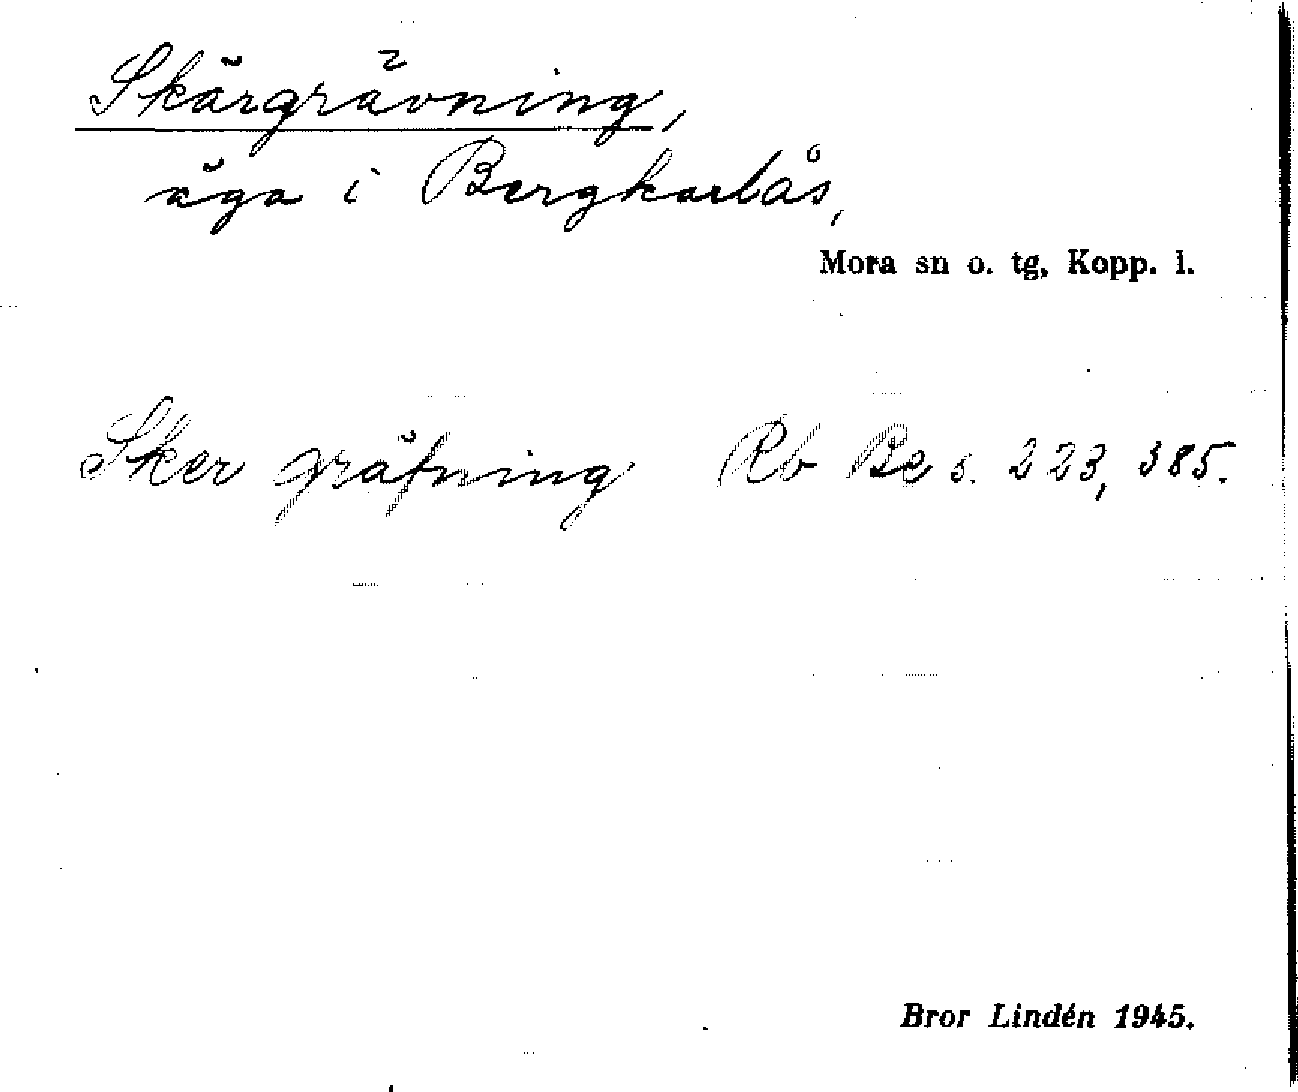 Skärgrävning,
äga i Bergkarlås,
Mora sn o. tg, Kopp. l.
Sker gräfning Rb Be s. 223, 385.
Bror Lindén 1945.